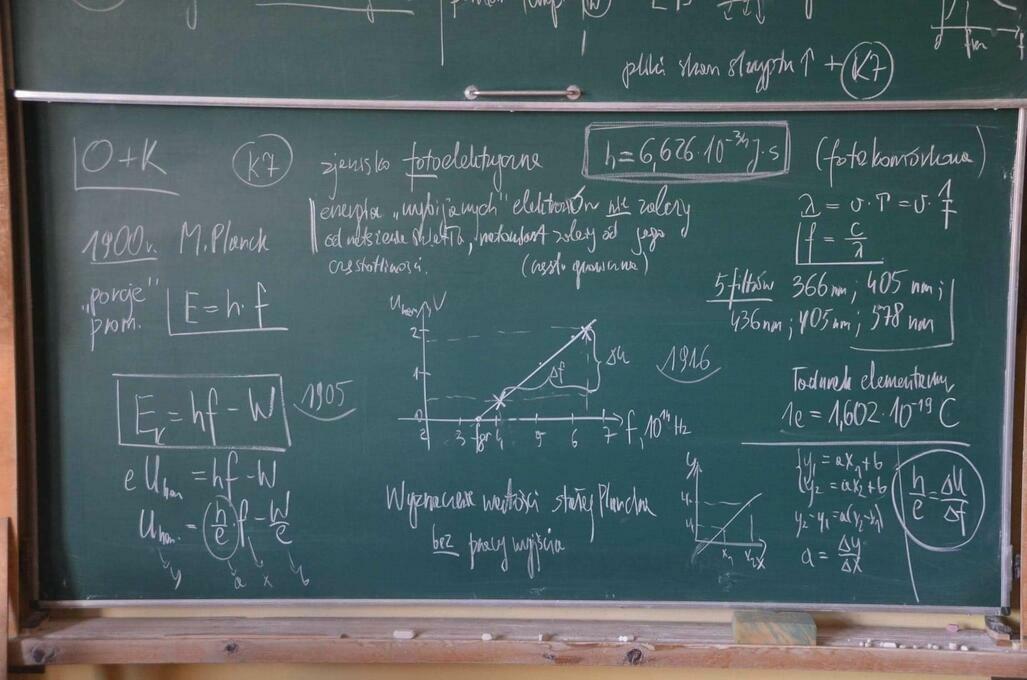 + K7
O+K
K7
zjawisko fotoelektryczne
h = 6,626 · 10⁻³⁴ J·s
(fotokomórkowa)
energia „wybijanych” elektronów nie zależy
od natężenia światła, natomiast zależy od jego
częstotliwości. (częst. graniczna)
λ = υ · T = υ · 1/f
f = c/λ
1900 r. M. Planck
„porcje”
prom.
E = h · f
5 filtrów 366 nm; 405 nm;
436 nm; 405 nm; 578 nm
U ham, V
2
1
0
2 3 fgr 4 5 6 7 f, 10¹⁴ Hz
Δf
ΔU
1916
Ładunek elementarny
1e = 1,602 · 10⁻¹⁹ C
Eₖ = hf - W
1905
e U ham = hf - W
U ham. = h/e · f - W/e
y a x b
Wyznaczenie wartości stałej Plancka
bez pracy wyjścia
y
x₁ x₂ x
y₁ = ax₁ + b
y₂ = ax₂ + b
y₂ - y₁ = a(x₂ - x₁)
a = Δy/Δx
h/e = ΔU/Δf